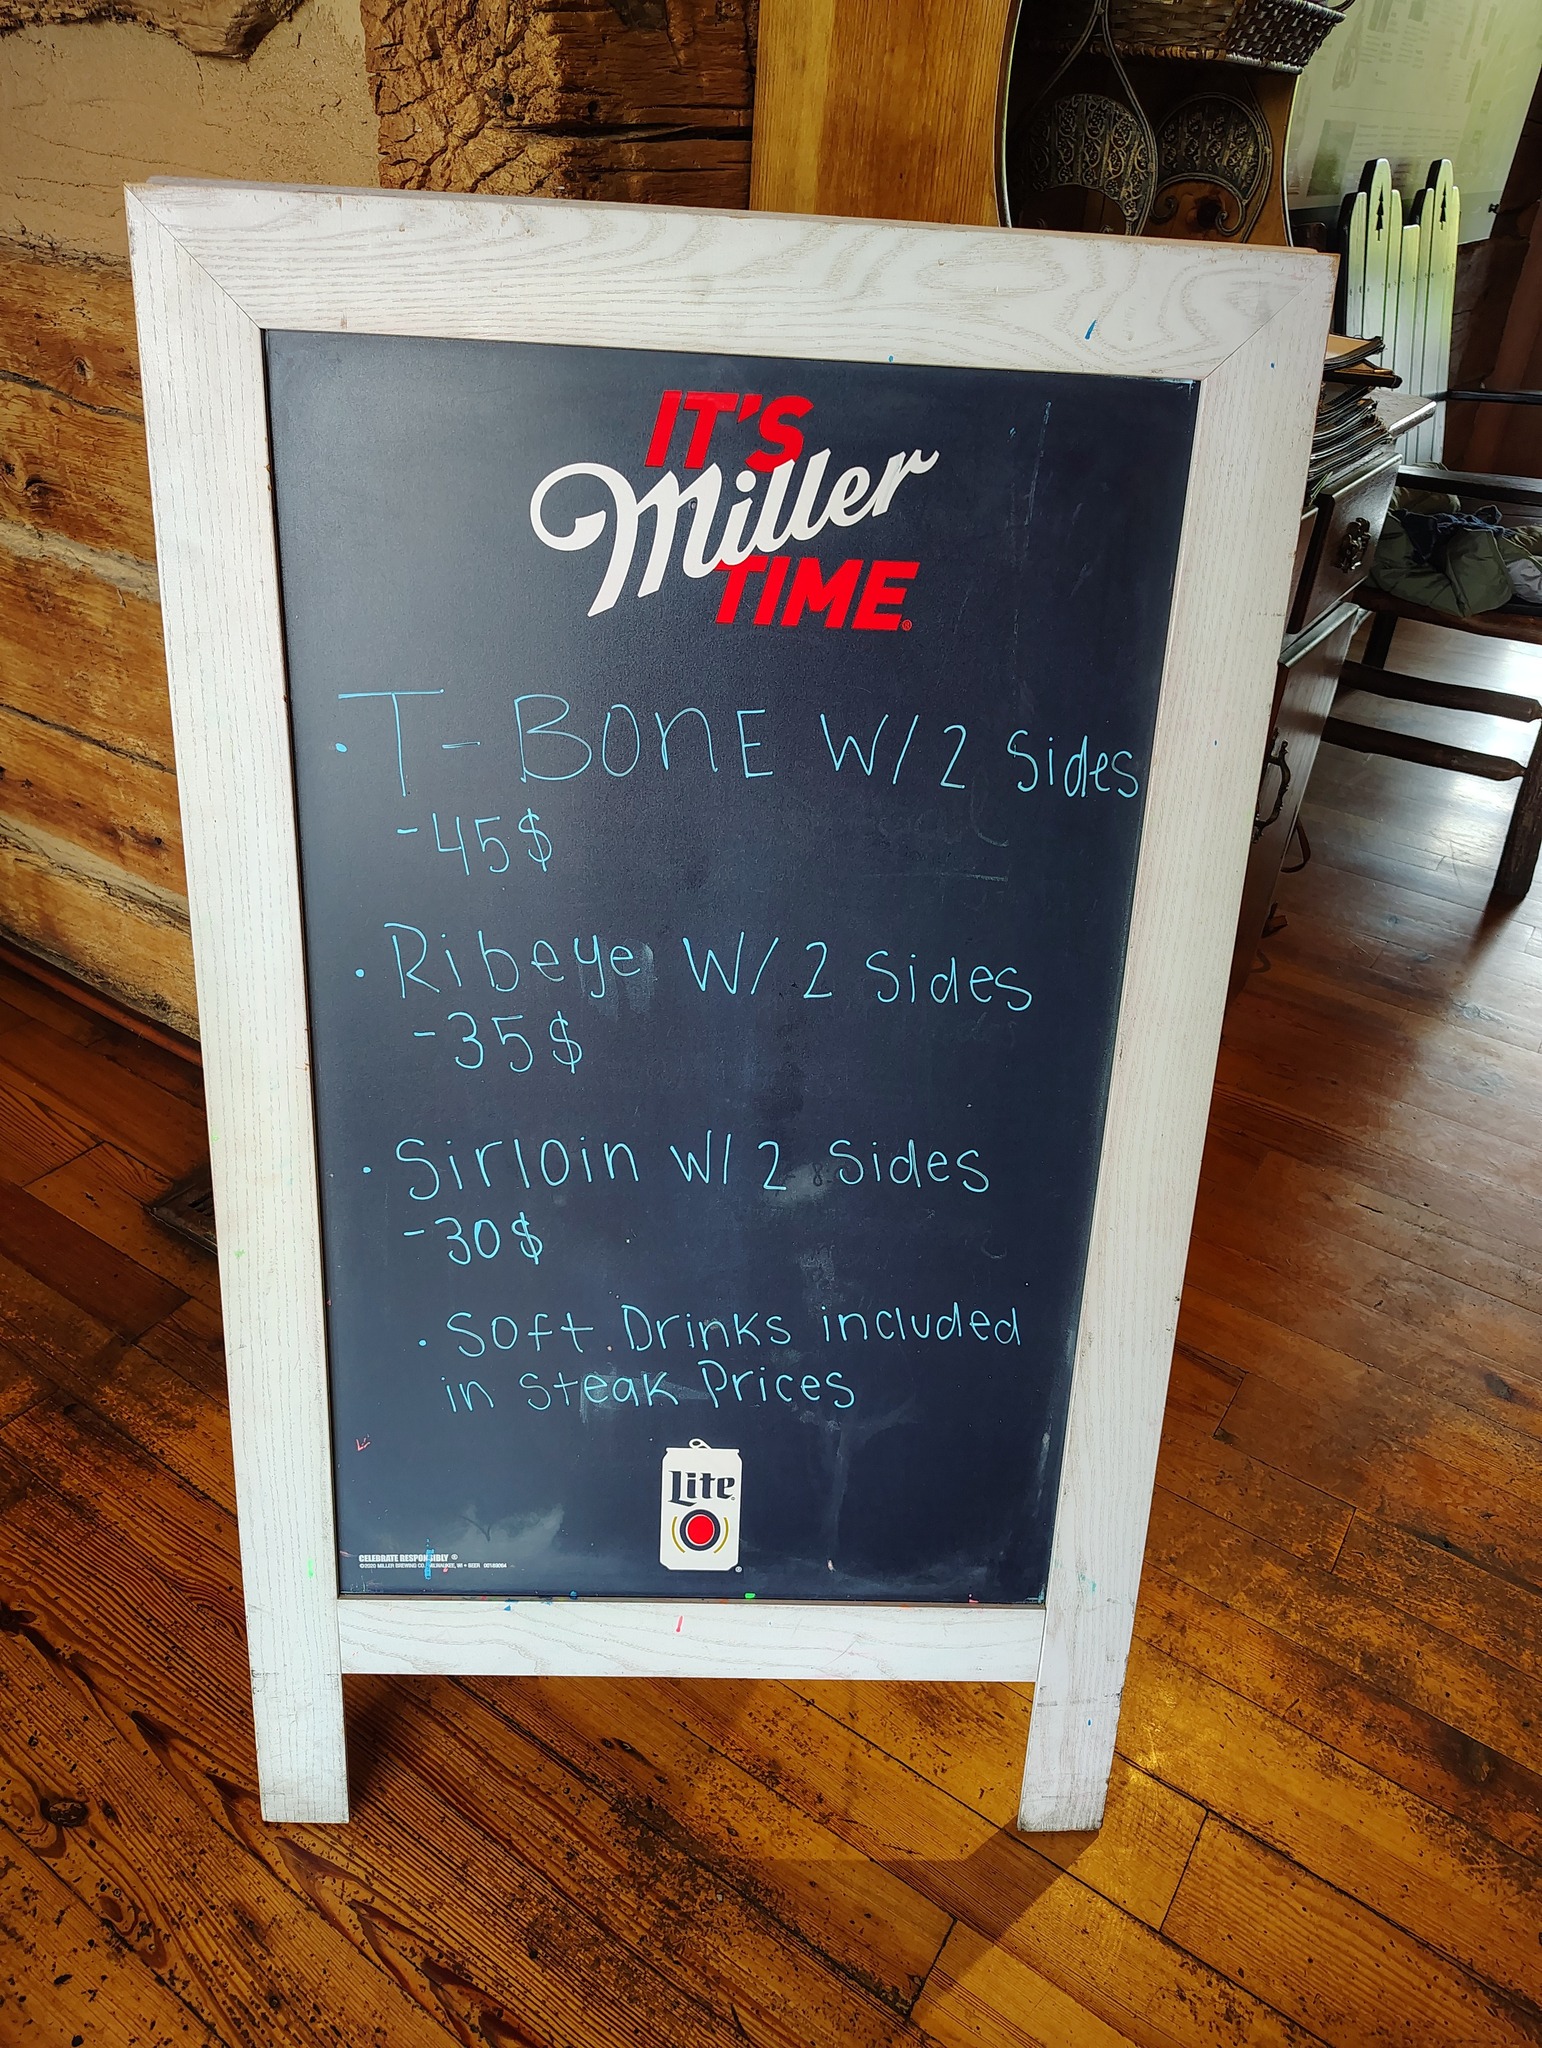 IT'S
Miller
TIME®
· T-BONE W/ 2 Sides
-45$
· Ribeye W/ 2 Sides
-35$
· Sirloin W/ 2 Sides
-30$
· Soft Drinks included
in Steak Prices
Lite®
CELEBRATE RESPONSIBLY®
©2020 MILLER BREWING CO., MILWAUKEE, WI • BEER